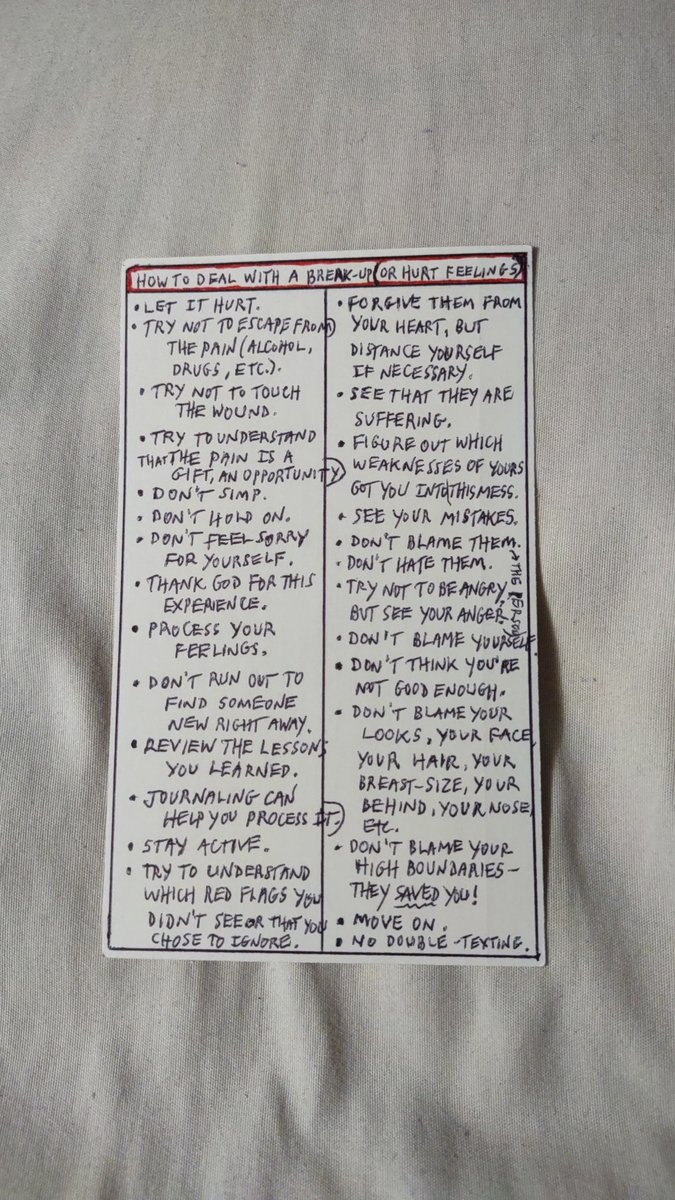 HOW TO DEAL WITH A BREAK-UP (OR HURT FEELINGS)
• LET IT HURT.
• TRY NOT TO ESCAPE FROM
THE PAIN (ALCOHOL,
DRUGS, ETC.).
• TRY NOT TO TOUCH
THE WOUND.
• TRY TO UNDERSTAND
THAT THE PAIN IS A
GIFT, AN OPPORTUNITY.
• DON'T SIMP.
• DON'T HOLD ON.
• DON'T FEEL SORRY
FOR YOURSELF.
• THANK GOD FOR THIS
EXPERIENCE.
• PROCESS YOUR
FEELINGS.
• DON'T RUN OUT TO
FIND SOMEONE
NEW RIGHT AWAY.
• REVIEW THE LESSONS
YOU LEARNED.
• JOURNALING CAN
HELP YOU PROCESS IT.
• STAY ACTIVE.
• TRY TO UNDERSTAND
WHICH RED FLAGS YOU
DIDN'T SEE OR THAT YOU
CHOSE TO IGNORE.
• FORGIVE THEM FROM
YOUR HEART, BUT
DISTANCE YOURSELF
IF NECESSARY.
• SEE THAT THEY ARE
SUFFERING.
• FIGURE OUT WHICH
WEAKNESSES OF YOURS
GOT YOU INTO THIS MESS.
• SEE YOUR MISTAKES.
• DON'T BLAME THEM.
• DON'T HATE THEM.
→ THE PERSON
• TRY NOT TO BE ANGRY,
BUT SEE YOUR ANGER.
• DON'T BLAME YOURSELF.
• DON'T THINK YOU'RE
NOT GOOD ENOUGH.
• DON'T BLAME YOUR
LOOKS, YOUR FACE,
YOUR HAIR, YOUR
BREAST-SIZE, YOUR
BEHIND, YOUR NOSE,
ETC.
• DON'T BLAME YOUR
HIGH BOUNDARIES –
THEY SAVED YOU!
• MOVE ON.
• NO DOUBLE-TEXTING.